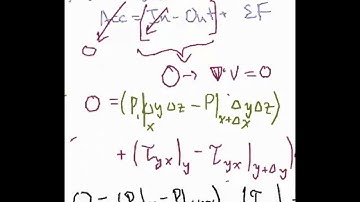 Acc = [In - Out] + ΣF
0
0 → ∇·V = 0
0 = (P|x Δy Δz - P|x+Δx Δy Δz)
+ (τyx|y - τyx|y+Δy)